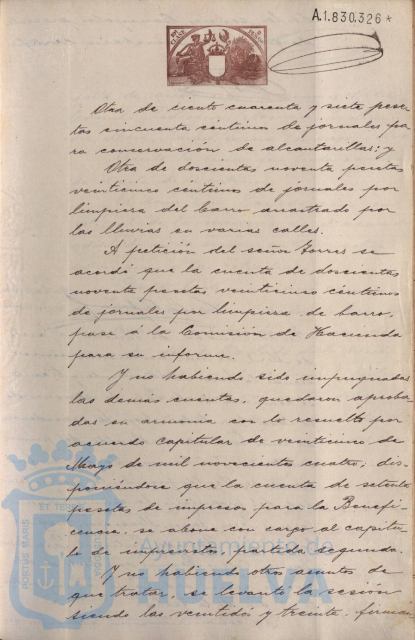 A.1.830.326*
Otra de ciento cuarenta y siete pese-
tas cincuenta céntimos de jornales pa-
ra conservación de alcantarillas; y
Otra de doscientas noventa pesetas
veinticinco céntimos de jornales por
limpieza del barro arrastrado por
las lluvias en varias calles.
A petición del señor Torres se
acordó que la cuenta de doscientas
noventa pesetas veinticinco céntimos
de jornales por limpieza de barro,
pase á la Comisión de Hacienda
para su informe.
Y no habiendo sido impugnadas
las demás cuentas, quedaron aproba-
das en armonía con lo resuelto por
acuerdo capitular de veinticinco de
Mayo de mil novecientos cuatro; dis-
poniéndose que la cuenta de setenta
pesetas de impresos para la Benefi-
cencia, se abone con cargo al capítu-
lo de imprevistos, partida segunda.
Y no habiendo otro asuntos de
que tratar, se levantó la sesión
siendo las veintidós y treinta, firman
PORTUS MARIS
Ayuntamiento de
HUELVA